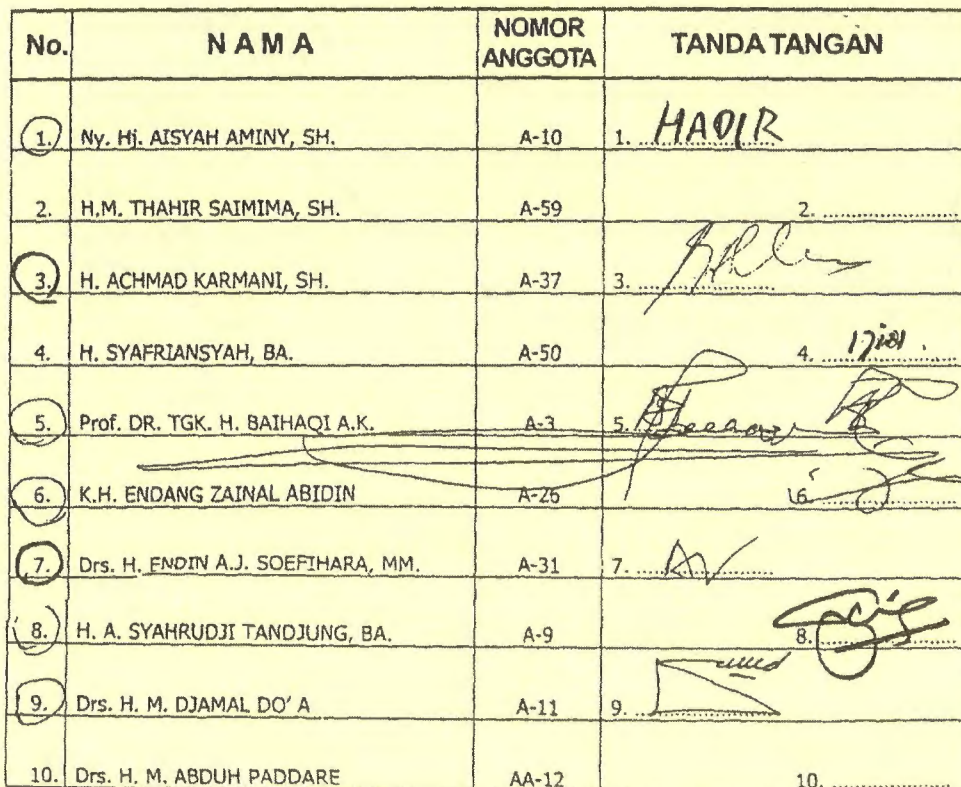 No. NAMA NOMOR ANGGOTA TANDA TANGAN
1. Ny. Hj. AISYAH AMINY, SH. A-10 1. HADIR
2. H.M. THAHIR SAIMIMA, SH. A-59 2. ....................
3. H. ACHMAD KARMANI, SH. A-37 3. ....................
4. H. SYAFRIANSYAH, BA. A-50 4. ....................
5. Prof. DR. TGK. H. BAIHAQI A.K. A-3 5. ....................
6. K.H. ENDANG ZAINAL ABIDIN A-26 6. ....................
7. Drs. H. ENDIN A.J. SOEFIHARA, MM. A-31 7. ....................
8. H. A. SYAHRUDJI TANDJUNG, BA. A-9 8. ....................
9. Drs. H. M. DJAMAL DO' A A-11 9. ....................
10. Drs. H. M. ABDUH PADDARE AA-12 10. ....................